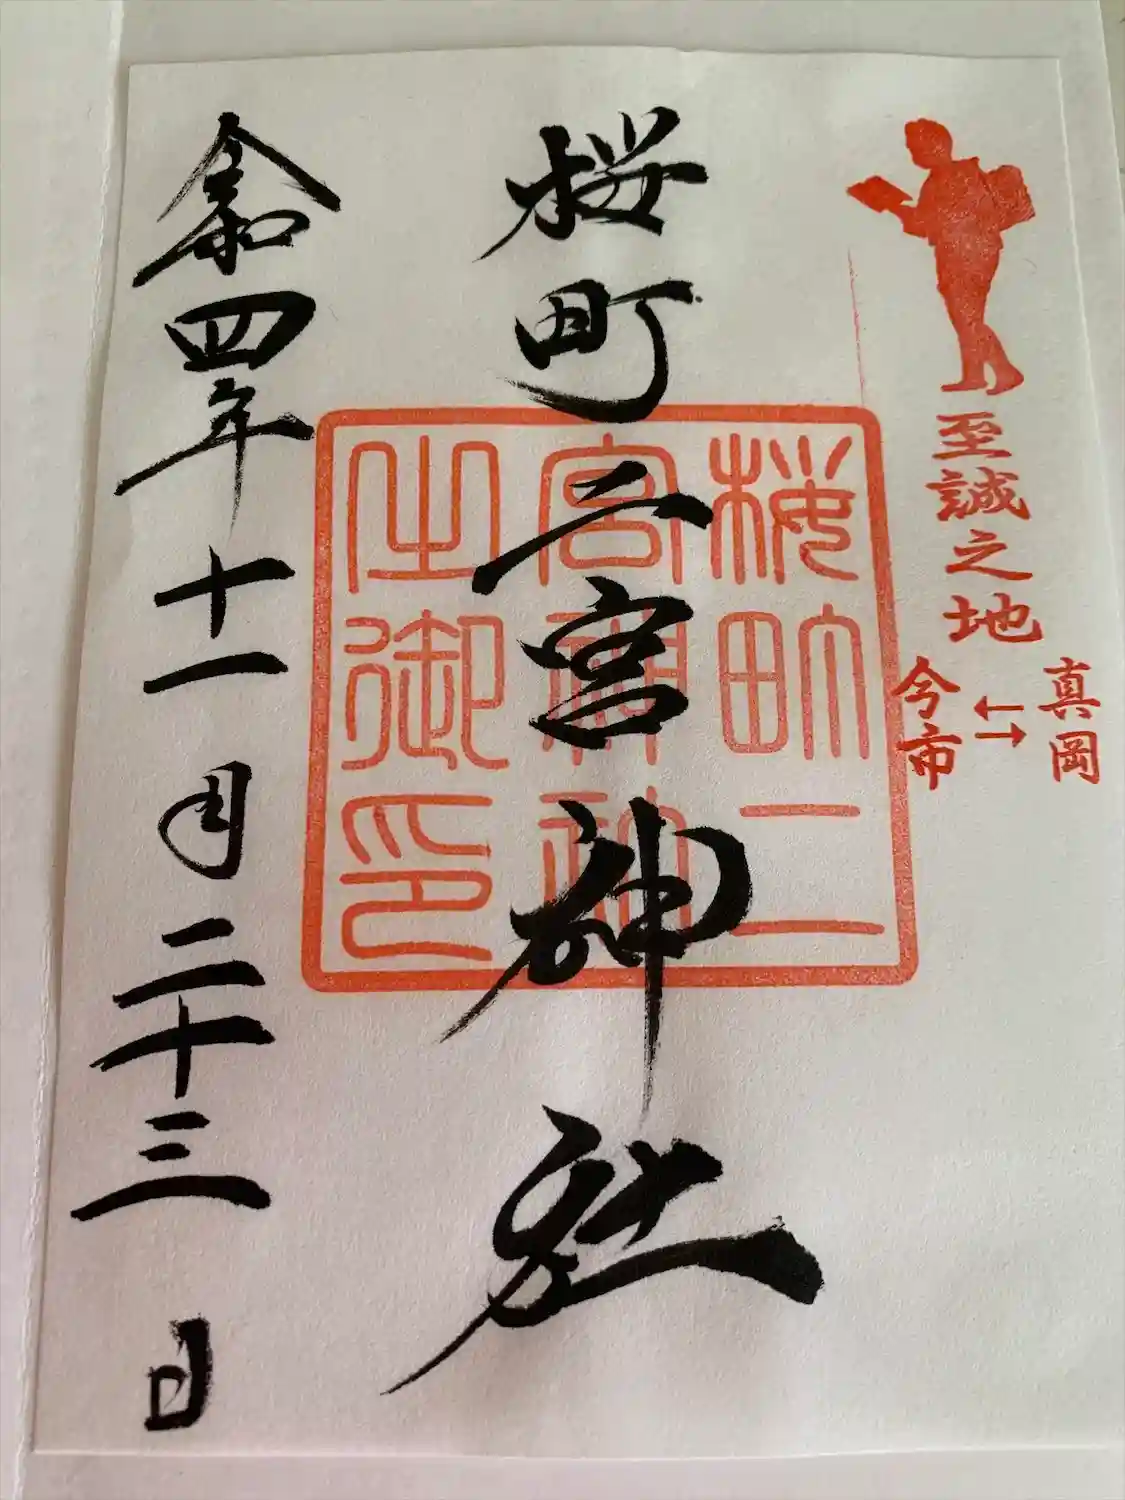 至誠之地
真岡
←→
今市
桜町二宮神社
桜町二
宮神社
之御印
令和四年十一月二十三日